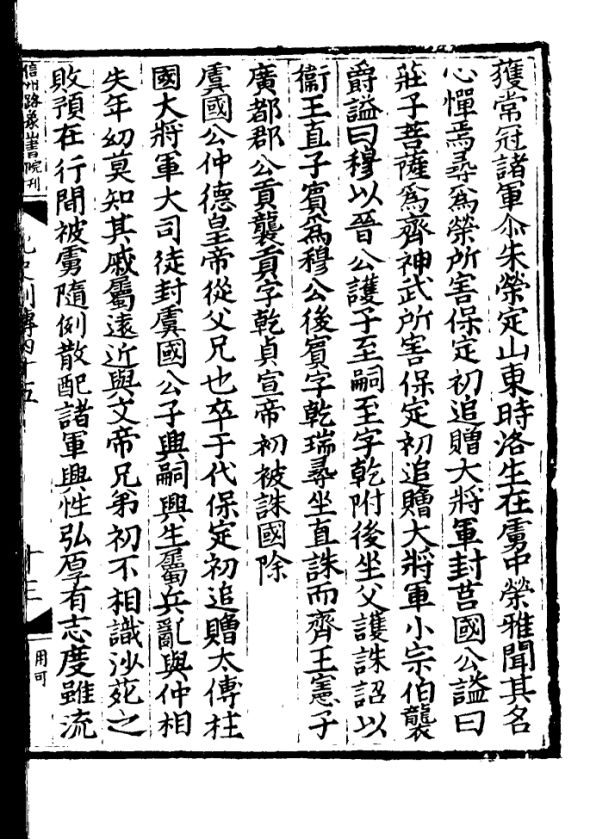 獲常冠諸軍尒朱榮定山東時洛生在虜中榮雅聞其名
心憚焉尋為榮所害保定初追贈大將軍封莒國公諡曰
莊子菩薩為齊神武所害保定初追贈大將軍小宗伯襲
爵諡曰穆以晉公護子至嗣至字乾附後坐父護誅詔以
衞王直子賓為穆公後賓字乾瑞尋坐直誅而齊王憲子
廣都郡公貢襲貢字乾貞宣帝初被誅國除
虞國公仲德皇帝從父兄也卒于代保定初追贈太傅柱
國大將軍大司徒封虞國公子興嗣興生屬兵亂與仲相
失年幼莫知其戚屬遠近與文帝兄弟初不相識沙苑之
敗預在行間被虜隨例散配諸軍興性弘厚有志度雖流
信州路象山書院刊
北史列傳四十五
十三
用可